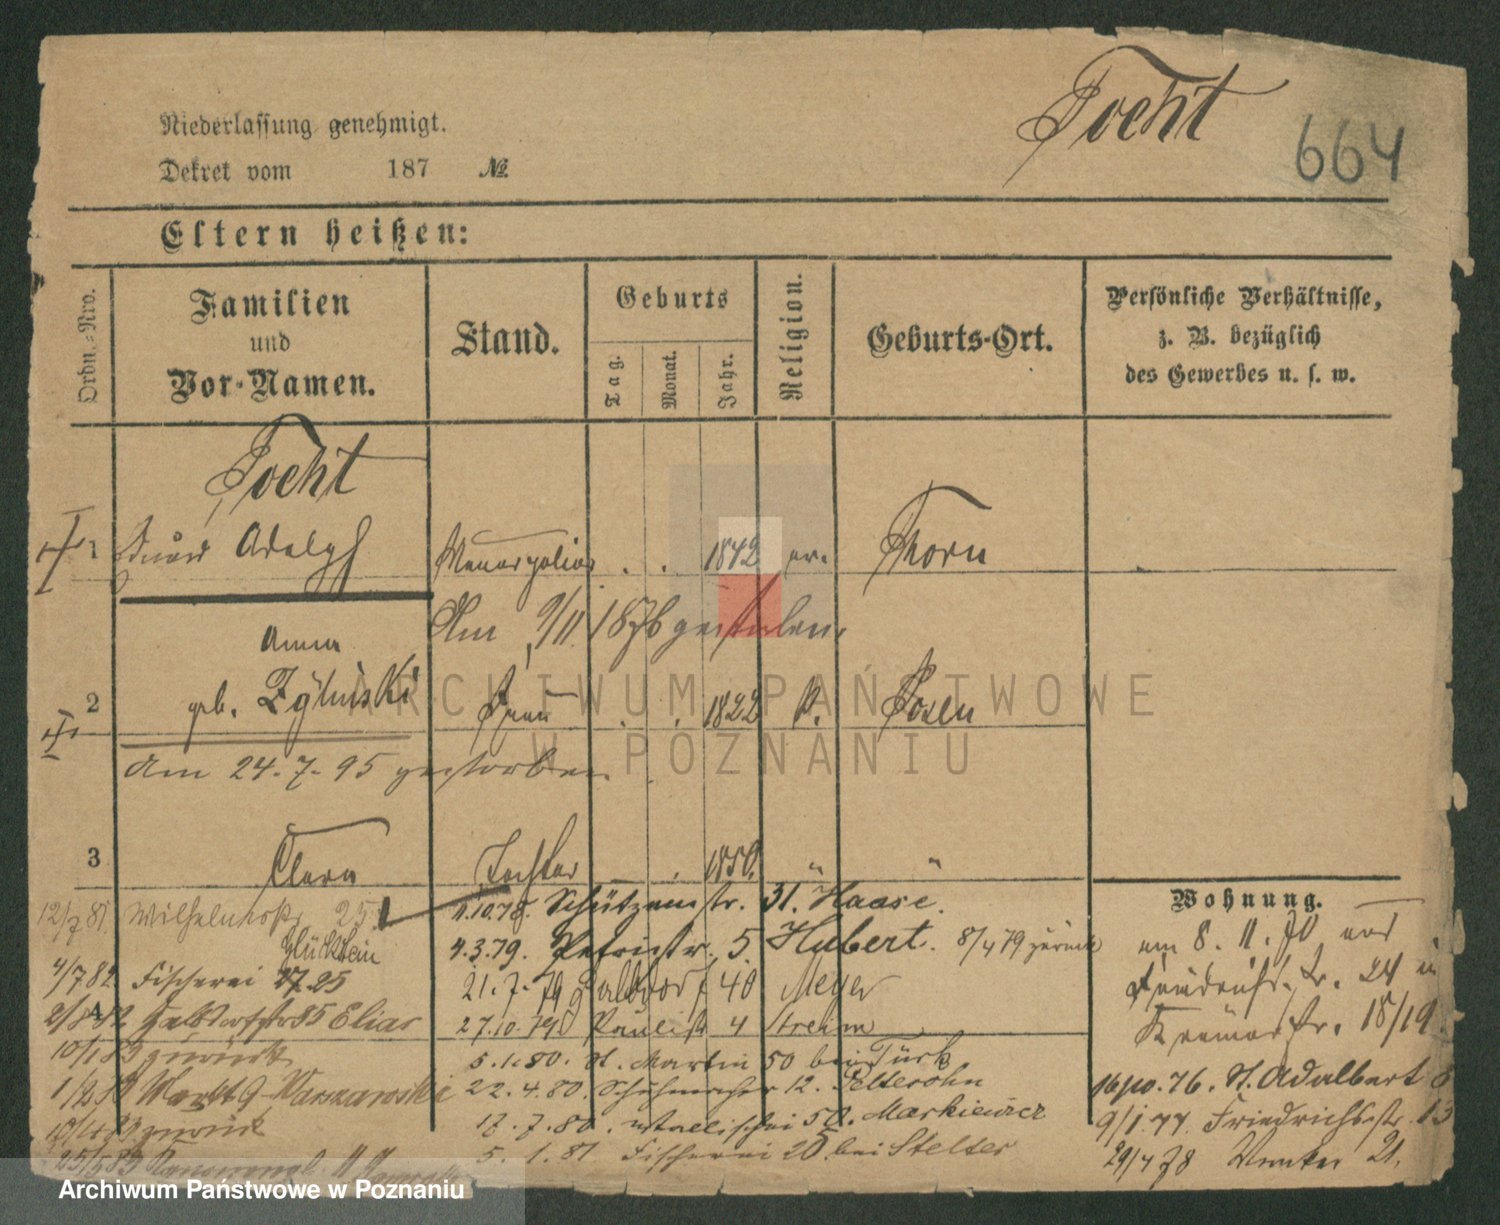 Tocht
664
Niederlassung genehmigt.
Dekret vom 187 №
Eltern heißen:
Ordn.-Nro.
Familien und Vor-Namen.
Stand.
Geburts
Tag.
Monat.
Jahr.
Religion.
Geburts-Ort.
Persönliche Verhältnisse,
z. B. bezüglich
des Gewerbes u. s. w.
Tocht
1 Eduard Adolph 1842 ev. Thorn
Am 9/11 1876 gestorben.
Anna
2 geb. Zylinski Frau 1822 k. Posen
Am 24.7.95 gestorben
3 Clara Tochter 1850. " "
Wohnung.
12/7 81 Wilhelmstr 25.
Glückstein
4.10.78. Schützenstr. 31. Haase.
4.3.79. Petristr. 5. Hubert. 8/4 79 zurück
am 8. 11. 70
Friedrichstr. 24
4/7 82 Fischerei 25
21.7.79 Halbdorf 40 Meyer
Krämerstr. 18/19
Halbdorfstr 35 Elias
27.10.79 Paulist 4 Streim
10/1 83 zurück
5.1.80. St. Martin 50 bei Türk
1/2 83 Markt 9 Warszawski
22.4.80. Schuhmacher 12. Peltesohn
16/10.76. St. Adalbert
10/4 83 zurück
17.7.80. Markiewicz
9/1.77 Friedrichsstr. 13
25/5 83
5.1.81 Fischerei 20. bei Stelter
29/4 78 21.
ARCHIWUM PAŃSTWOWE
W POZNANIU
Archiwum Państwowe w Poznaniu